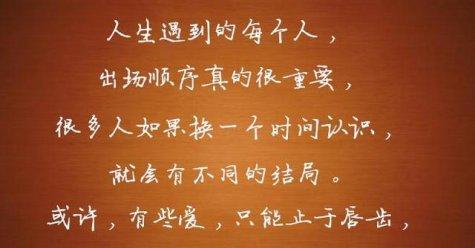 人生遇到的每个人，
出场顺序真的很重要，
很多人如果换一个时间认识，
就会有不同的结局。
或许，有些爱，只能止于唇齿，